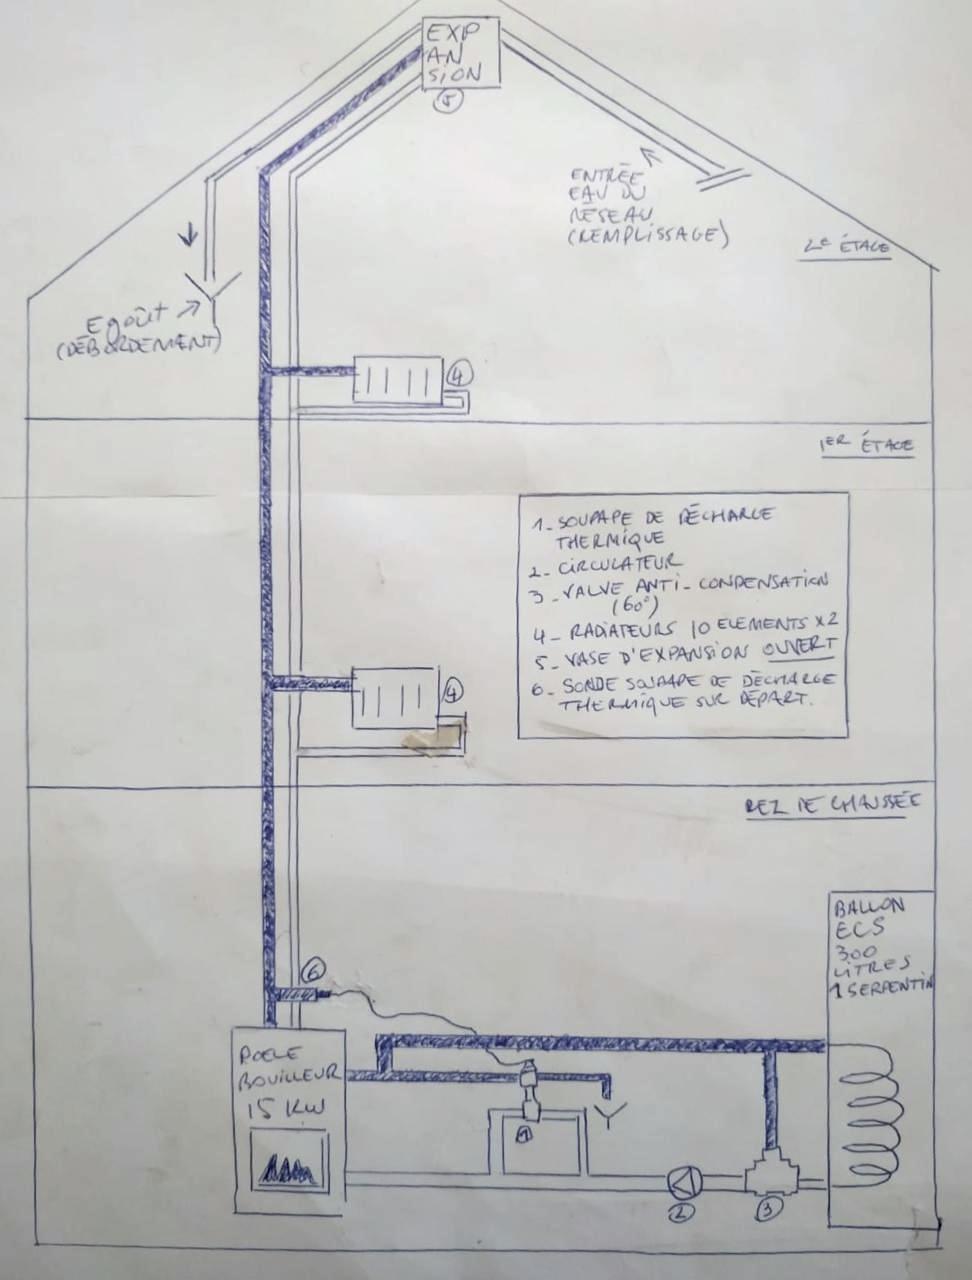 EXP
AN
SION
5
ENTRÉE
EAU DU
RÉSEAU
(REMPLISSAGE)
2e ÉTAGE
Egoût
(DÉBORDEMENT)
4
1ER ÉTAGE
1_ SOUPAPE DE DÉCHARGE
THERMIQUE
2_ CIRCULATEUR
3_ VALVE ANTI-CONDENSATION
(60°)
4_ RADIATEURS 10 ELEMENTS x2
5_ VASE D'EXPANSION OUVERT
6_ SONDE SOUPAPE DE DÉCHARGE
THERMIQUE SUR DÉPART.
4
REZ DE CHAUSSÉE
BALLON
ECS
300
LITRES
1 SERPENTIN
6
POELE
BOUILLEUR
15 KW
1
2
3